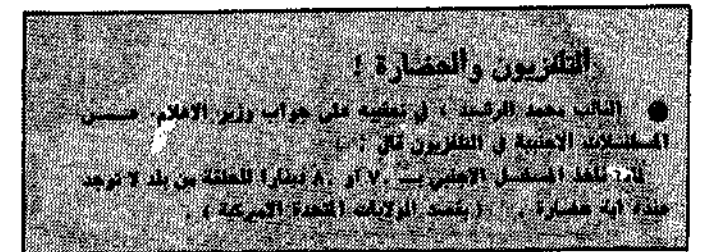 التلفزيون والحضارة !
● النائب محمد الرشيد ، في تعقيبه على جواب وزير الاعلام، عسن
المسلسلات الاجنبية في التلفزيون قال :
نأخذ المسلسل الاجنبي بـ ٧٠ أو ٨٠ دينارا للحلقة من بلد لا توجد
عنده اية حضارة . ( يقصد الولايات المتحدة الاميركية ) .